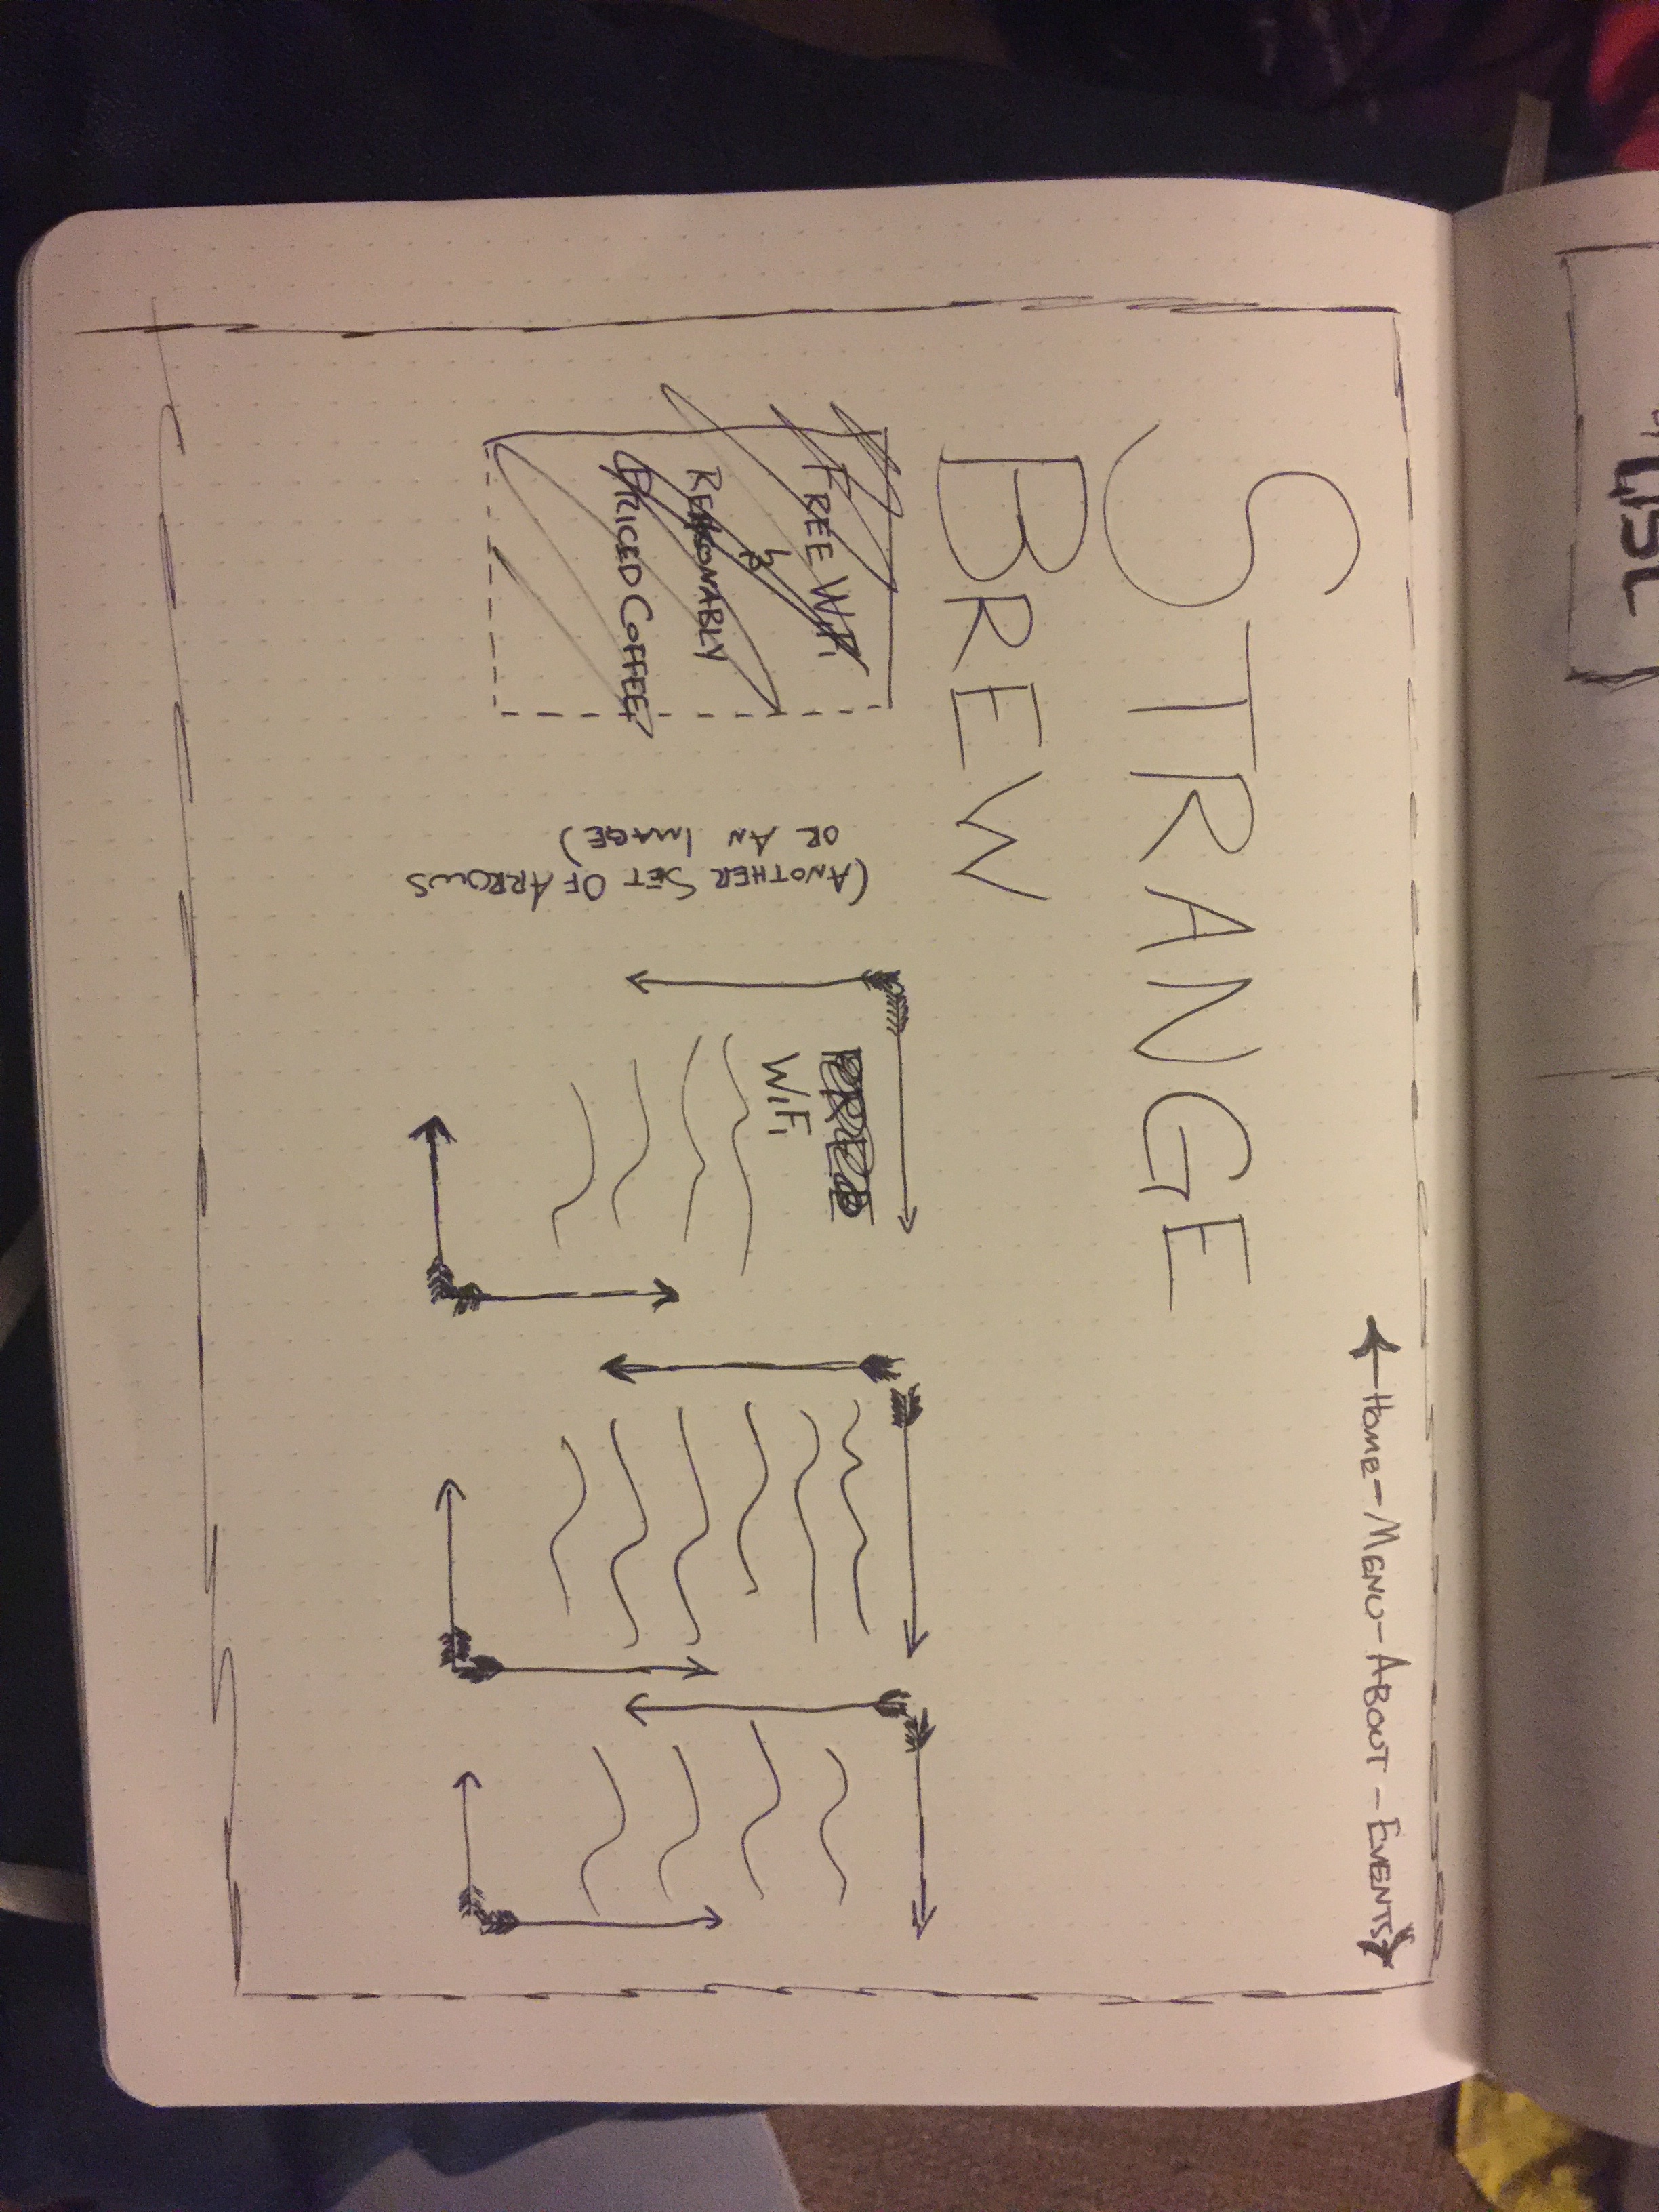 ←Home-Menu-About-Events→
STRANGE
BREW
FREE WiFi
&
REASONABLY
PRICED COFFEE
(ANOTHER SET OF ARROWS
OR AN IMAGE)
WiFi